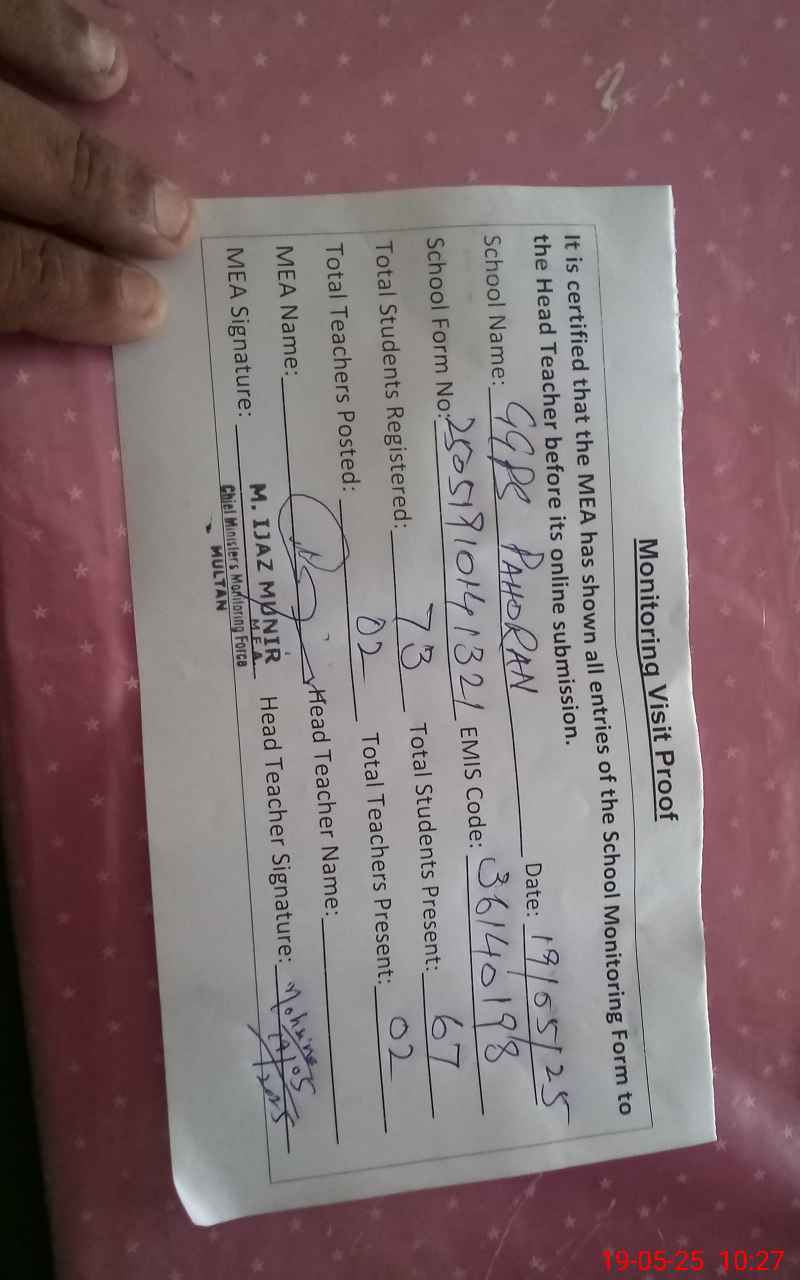 Monitoring Visit Proof
It is certified that the MEA has shown all entries of the School Monitoring Form to
the Head Teacher before its online submission.
School Name: GGPS PAHORAN Date: 19/05/25
School Form No: 25051910141321 EMIS Code: 36140198
Total Students Registered: 73 Total Students Present: 67
Total Teachers Posted: 02 Total Teachers Present: 02
MEA Name: Head Teacher Name:
MEA Signature: M. IJAZ MUNIR Head Teacher Signature:
M.E.A.
Chief Ministers Monitoring Force
MULTAN
19-05-25 10:27